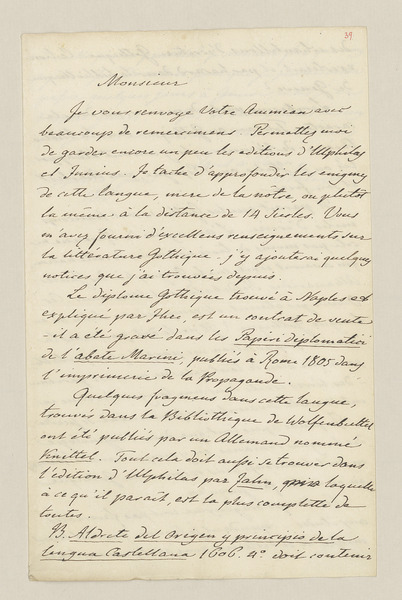 39
Monsieur
Je vous renvoye Votre Ammian avec
beaucoup de remercimens. Permettez moi
de garder encore un peu les editions d'Ulphilas
et Junius. Je tache d'approfondir les enigmes
de cette langue, mere de la nôtre, ou plutôt
la même à la distance de 14 Siècles. Vous
m'avez fourni d'excellens renseignements sur
la littérature Gothique. j'y ajouterai quelques
notices que j'ai trouvées depuis.
Le diplome Gothique trouvé à Naples et
expliqué par Ihre, est un contrat de vente
- il a été gravé dans les Papiri diplomatici
de l'abate Marini, publiés à Rome 1805 dans
l'imprimerie de la Propagande.
Quelques fragmens dans cette langue,
trouvés dans la Bibliothèque de Wolfenbuttel
ont été publiés par un Allemand nommé
Knittel. Tout cela doit aussi se trouver dans
l'édition d'Ulphilas par Zahn, laquelle
à ce qu'il paraît, est la plus complette de
toutes.
B. Aldrete del Origen y principio de la
lengua Castellana 1606. 4° doit contenir